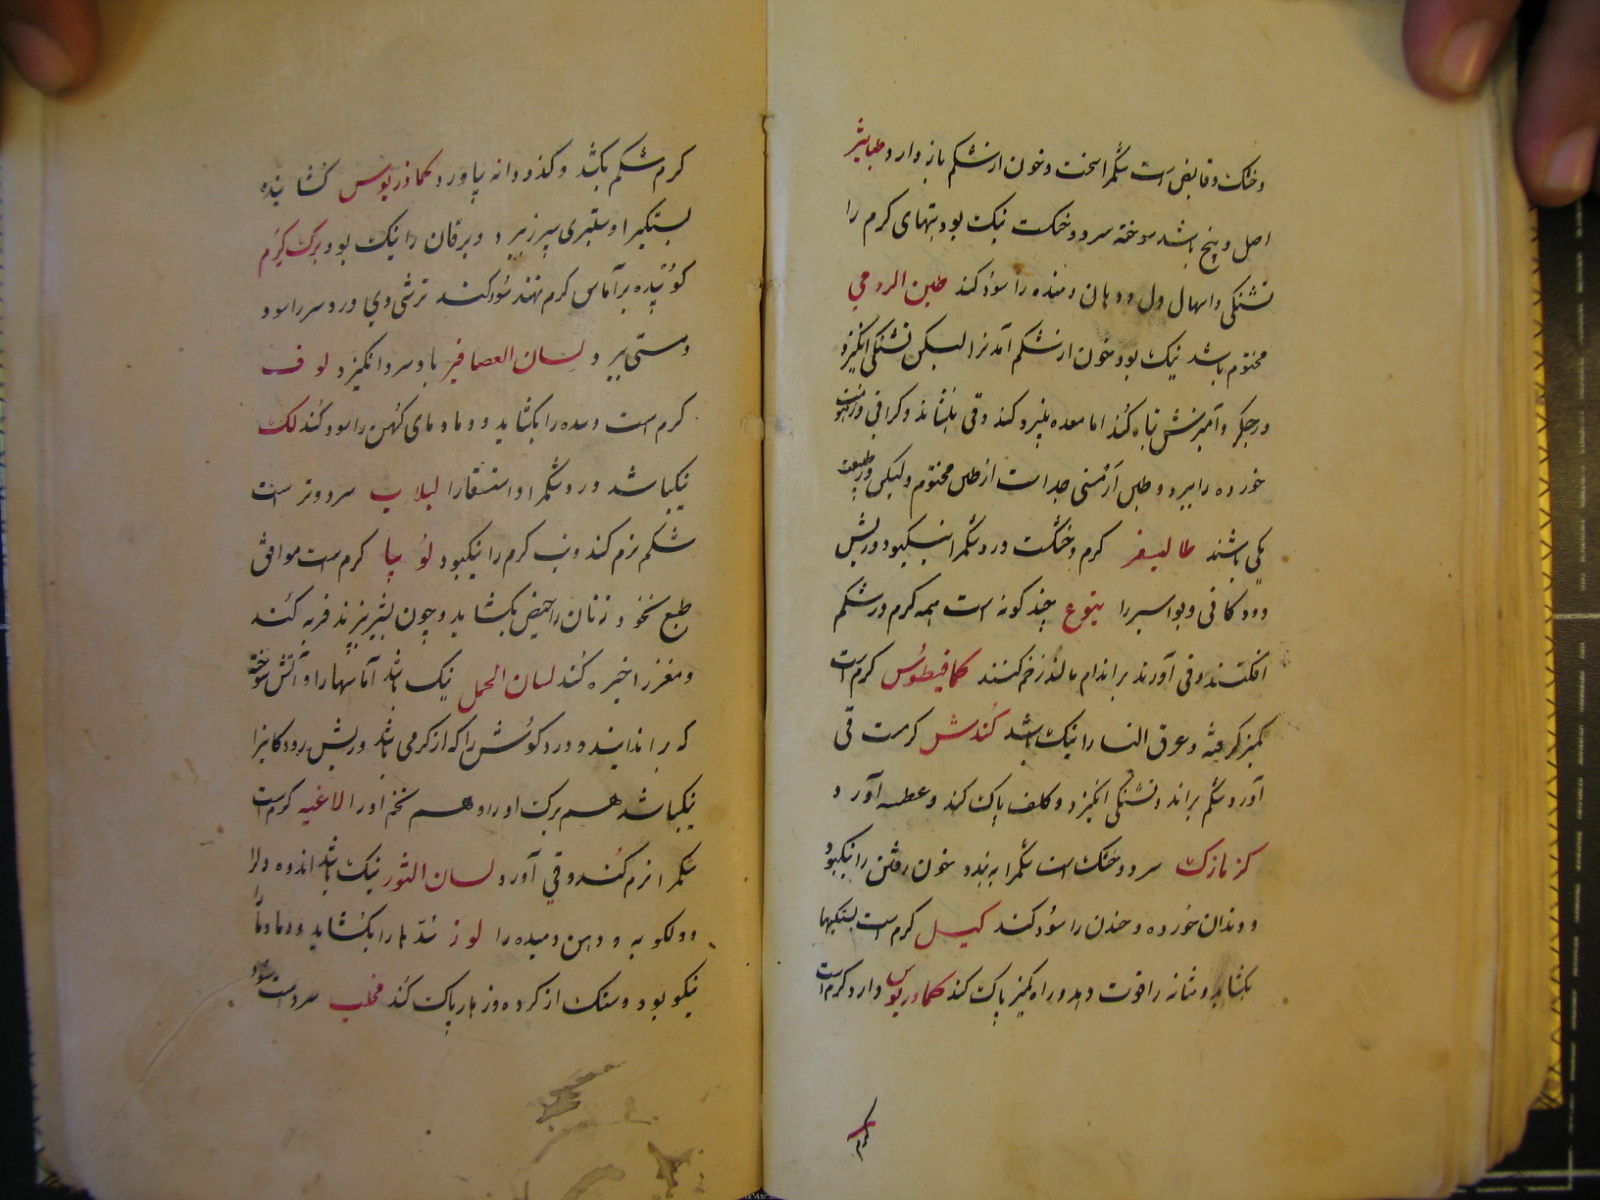 و خشک و قابض است شکم را سخت و خون از شکم باز دارد طباشیر
اصل و بیخ باشد سوخته سرد و خشکت نیک بود تبهای کرم را
تشنکی و اسهال و دل و دهان دمیده را سود کند طین الرومی
مختوم باشد نیک بود خون از شکم آمدنرا لیکن تشنکی انکیزد
در جکر و آمیزش تباه کند اما معده بپزد کند و قی بنشاند و کرانی
خورده را ببرد و طین ارمنی جداست از طین مختوم ولیکن در طبیعت
یکی باشند طالیسفر کرم و خشکت درد شکم را نیکبود و ریش
رودکانی و بواسیر را یتوع چند کونه است همه کرم در شکم
افکنند و قی آورند بر اندام مالند زخم کنند کمافیطوس کرم است
کمیز کرفته و عرق النسا را نیک باشد کندش کرمست قی
آورد شکم براند و تشنکی انکیزد و کلف پاک کند و عطسه آورد
کزمازک سرد و خشک است شکم را ببندد خون رفتن را نیکبود
و دندان خورده و خون را سود کند کیل کرم است بستکیها
بکشاید و مثانه را قوت دهد و راه کمیز پاک کند کمادریوس دارد کرم است
کرم
کرم شکم بکشد و کدودانه بیاورد کمادریوس کشاینده
بستکیرا و ستبری سپرز ببرد و یرقان را نیک بود برک کرم
کوبیده بر آماس کرم نهند سود کند ترشی وی درد سر را سود
و مستی ببرد لسان العصافیر باد سرد انکیزد لوف
کرم است و سده را بکشاید و دمادمای کهن را سود کند لک
نیکباشد درد شکم را و استسقا را لبلاب سرد و تر است
شکم نرم کند و تب کرم را نیکبود لوبیا کرم ست موافق
طبع نخود و زنان را حیض بکشاید و چون بشیر بپزند فربه کند
و مغز را خیره کند لسان الحمل نیک باشد آماسها را و آتش سوخته
که بر اندایند و درد کوش را که از کرمی باشد و ریش رودکانرا
نیکباشد هم برکت او را و هم تخم او را لاغیه کرم است
شکم را نرم کند و قی آورد لسان الثور نیک باشد اندوه دل را
و دلکوبه و دهن دمیده را لوز سدها را بکشاید و دمادما
نیکو بود و سنک از کرده و زهار پاک کند محلب سرد است سود